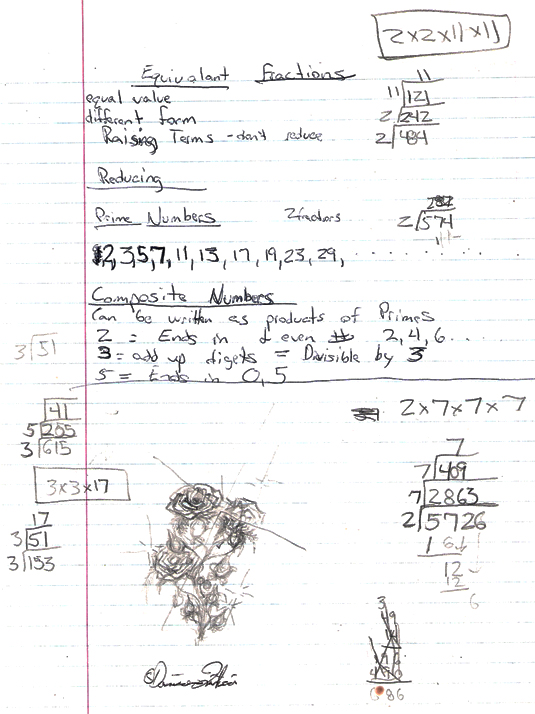 2x2x11x11
Equivalant Fractions
11
11 121
2 242
2 484
equal value
different form
Raising Terms - don't reduce
Reducing
Prime Numbers 2 factors
2 574
2,3,5,7,11,13,17,19,23,29,
Composite Numbers
Can be written as products of Primes
2 = Ends in even # 2,4,6..
3 = add up digets = Divisible by 3
5 = Ends in 0,5
3 51
41
5 205
3 615
3x3x17
17
3 51
3 153
2x7x7x7
7
7 409
7 2863
2 5726
1 6
12
12
6
3
86